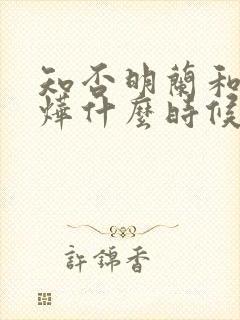 知否明蘭和
燁什麼時候
許錦香